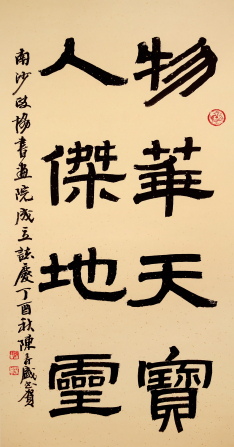 物華天寶
人傑地靈
南沙政協書畫院成立誌慶丁酉秋陳永盛賀